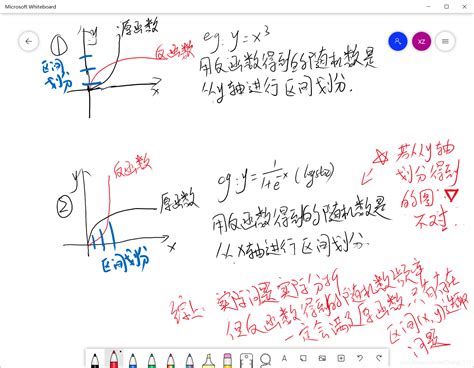 Microsoft Whiteboard
XZ
① y 原函数
反函数
区间
划分
x
eg: y=x³
用反函数得到的随机数是
从y轴进行区间划分.
② y 反函数
原函数
x
区间划分
eg: y=1/(1+e^x) (logstic)
用反函数得到的随机数是
从x轴进行区间划分.
若从y轴
划分得到
的图
不对.
综上: 实际问题实际分析
但反函数得到的随机数频率
一定会满足原函数.只有存在
区间(x,y)选取
问题